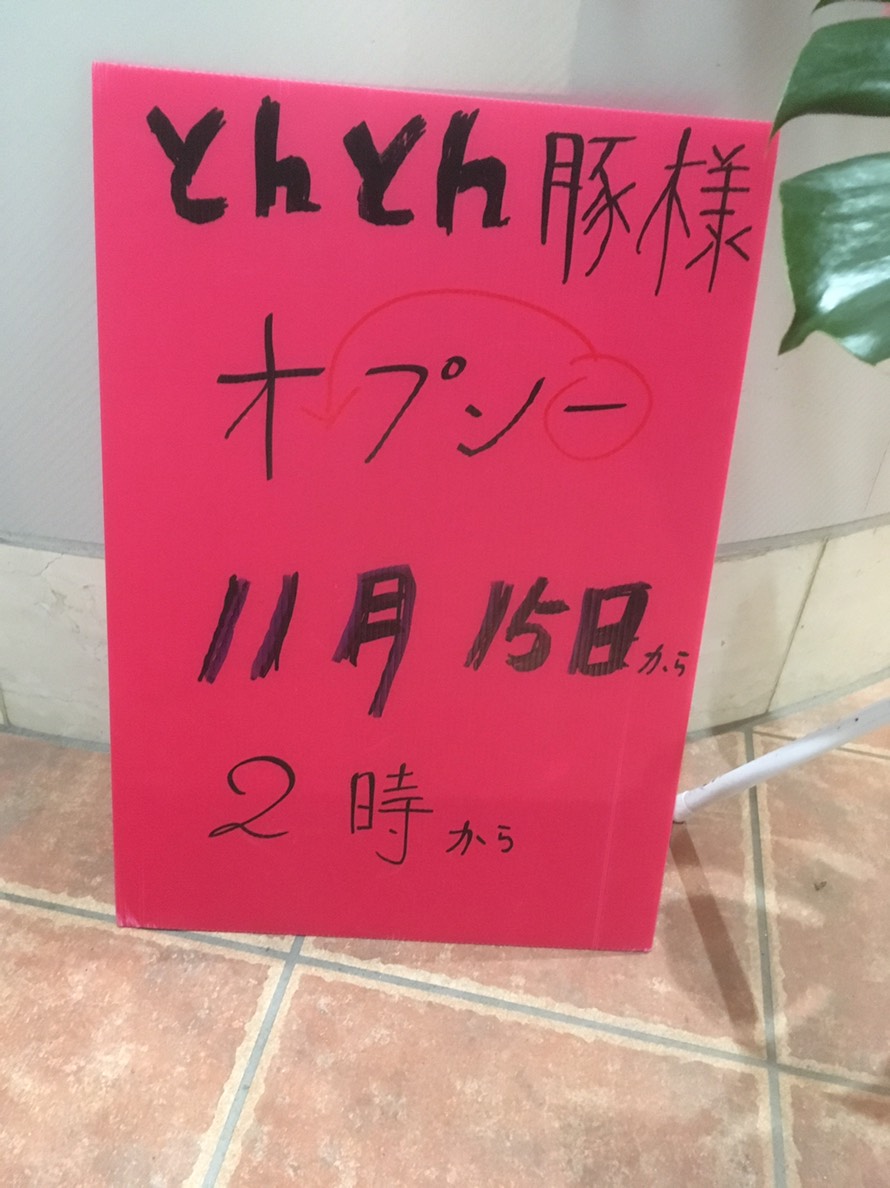 とんとん豚様
オプンー
11月15日から
2時から